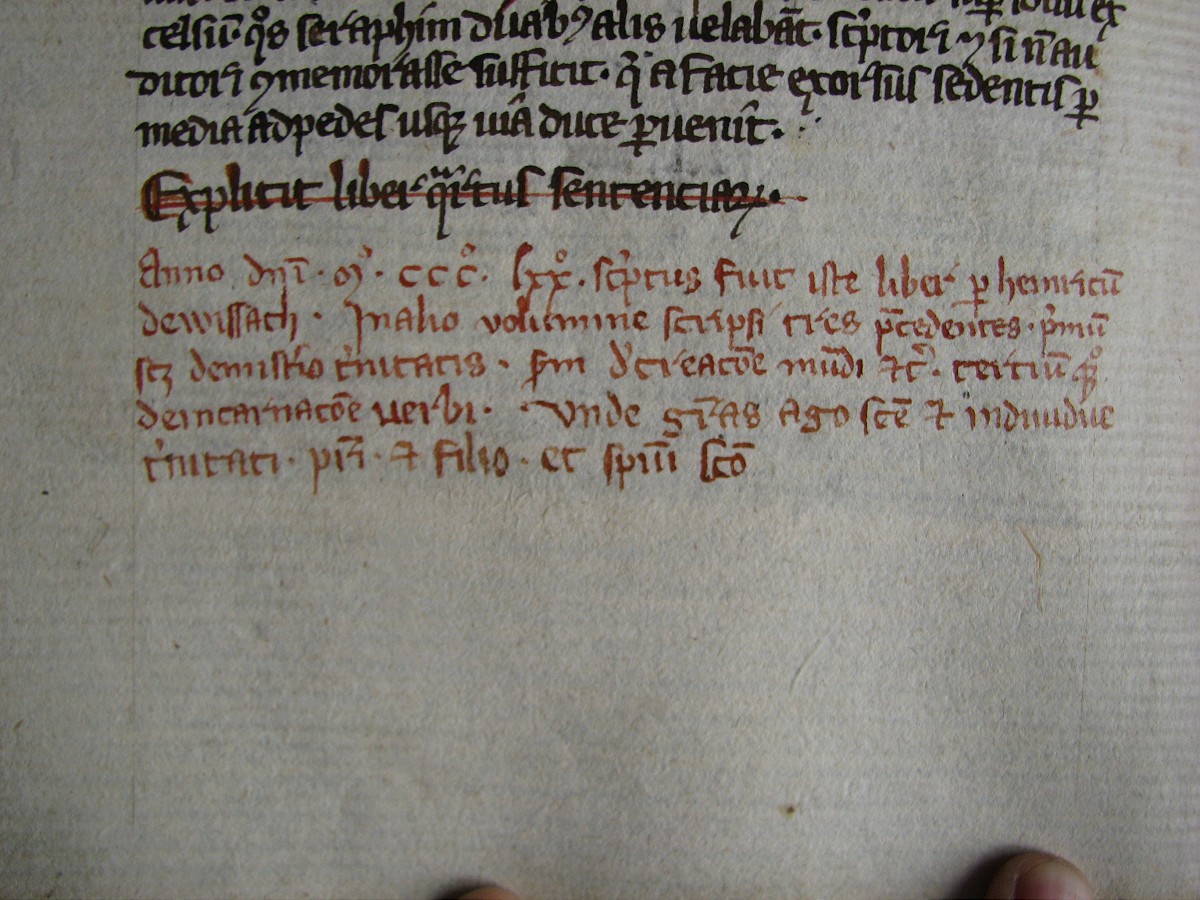 celsiū· q̄s seraphim duabꝰ alis uelabāt· sc̓ptori ⁊ si n̄ au
ditori ꝯmemorasse sufficit· q̇ a facie exorsus sedentis ꝑ
media ad pedes usqꝫ uia duce ꝑuenit̄·
Explicit liber qͣrtus sentenciaꝝ·
Anno dn̄i· mͦ· cccͦ· lxxͦ· sc̓ptus fuit iste liber ꝑ heinricū
de wissach· In alio volumine scripsi tres p̄cedentes· p̓mū
scꝫ de mist̓io t̓nitatis· sm d̓ creacōe mūdi ⁊c̓· terciū qͦꝫ
de incarnacōe verbi· vnde gr̄as ago scē ⁊ indiuidue
t̓nitati· pr̄i· ⁊ filio· et spiūi scō